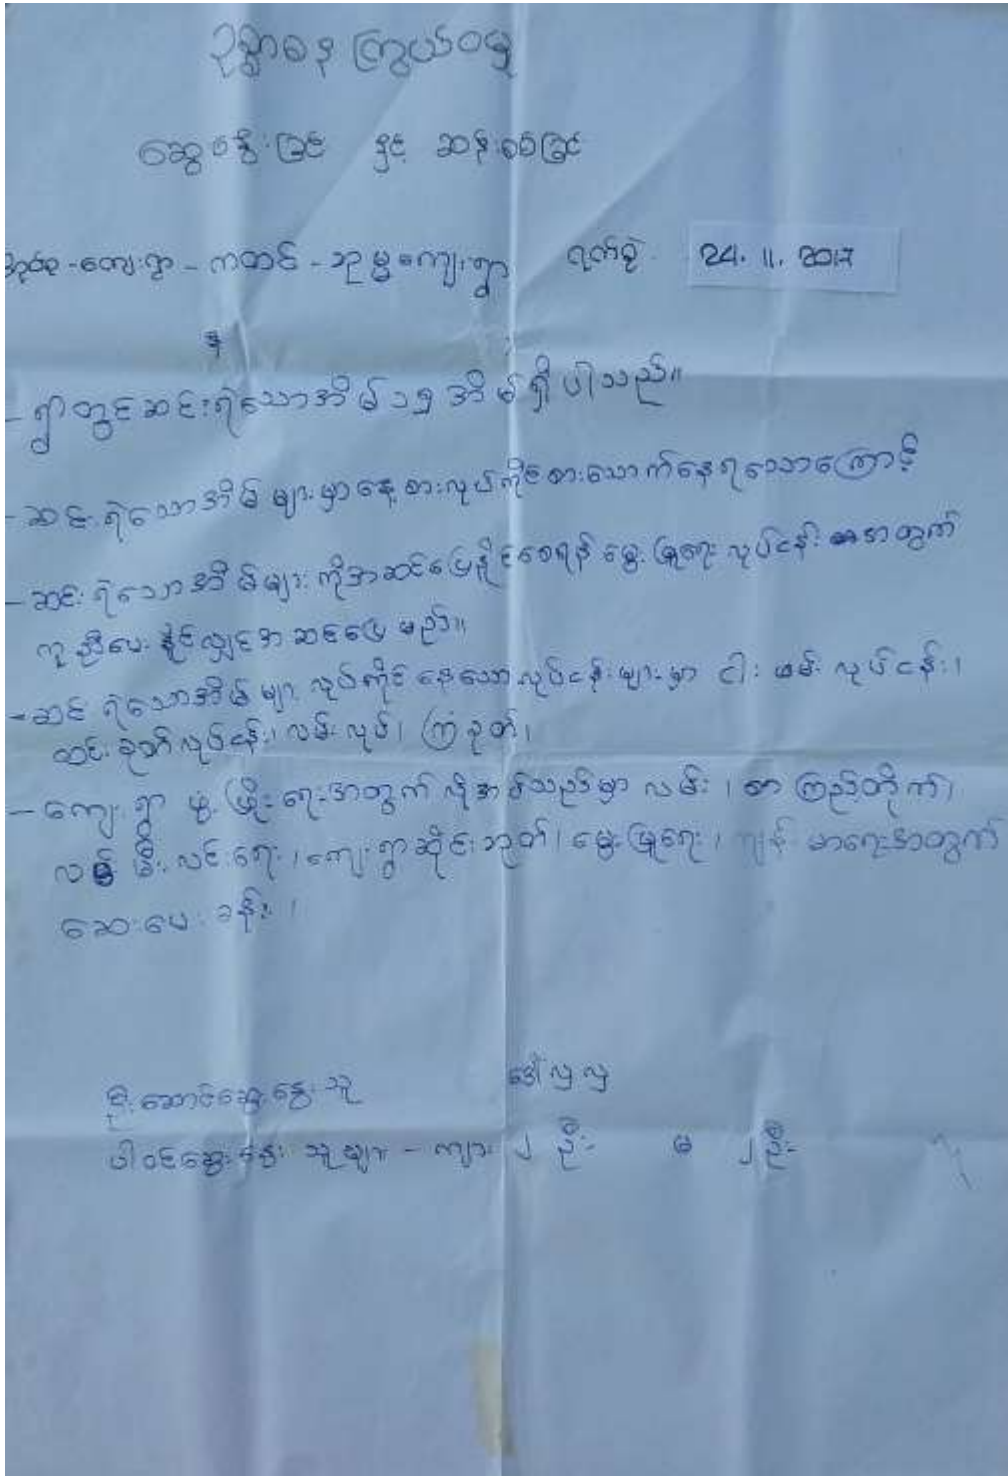 ဥစ္စာဓန ကြွယ်ဝမှု
ဆွေးနွေးခြင်း နှင့် ဆန်းစစ်ခြင်း
အုပ်စု - ကျေးရွာ - ကထင် - သုမ္မကျေးရွာ ရက်စွဲ 24. 11. 2017
- ရွာတွင်ဆင်းရဲသောအိမ် ၁၅ အိမ်ရှိပါသည်။
- ဆင်းရဲသောအိမ်များမှာနေ့စားလုပ်ကိုင်စားသောက်နေရသောကြောင့်
- ဆင်းရဲသောအိမ်များကိုအဆင်ပြေနိုင်စေရန် မွေးမြူရေး လုပ်ငန်း အတွက်
ကူညီပေးနိုင်လျှင်အဆင်ပြေမည်။
- ဆင်းရဲသောအိမ်များ လုပ်ကိုင်နေသောလုပ်ငန်းများမှာ ငါးဖမ်းလုပ်ငန်း၊
ထင်းခုတ်လုပ်ငန်း၊ လမ်းလုပ်၊ ကြံခုတ်၊
- ကျေးရွာ ဖွံ့ဖြိုးရေးအတွက် လိုအပ်သည်မှာ လမ်း၊ စာကြည့်တိုက်၊
လမ်းမီးလင်းရေး၊ ကျေးရွာဆိုင်းဘုတ်၊ မွေးမြူရေး၊ ကျန်းမာရေးအတွက်
ဆေးပေးခန်း၊
ဦးဆောင်ဆွေးနွေးသူ ဒေါ်လှလှ
ပါဝင်ဆွေးနွေးသူများ - ကျား ၂ ဦး မ ၂ ဦး